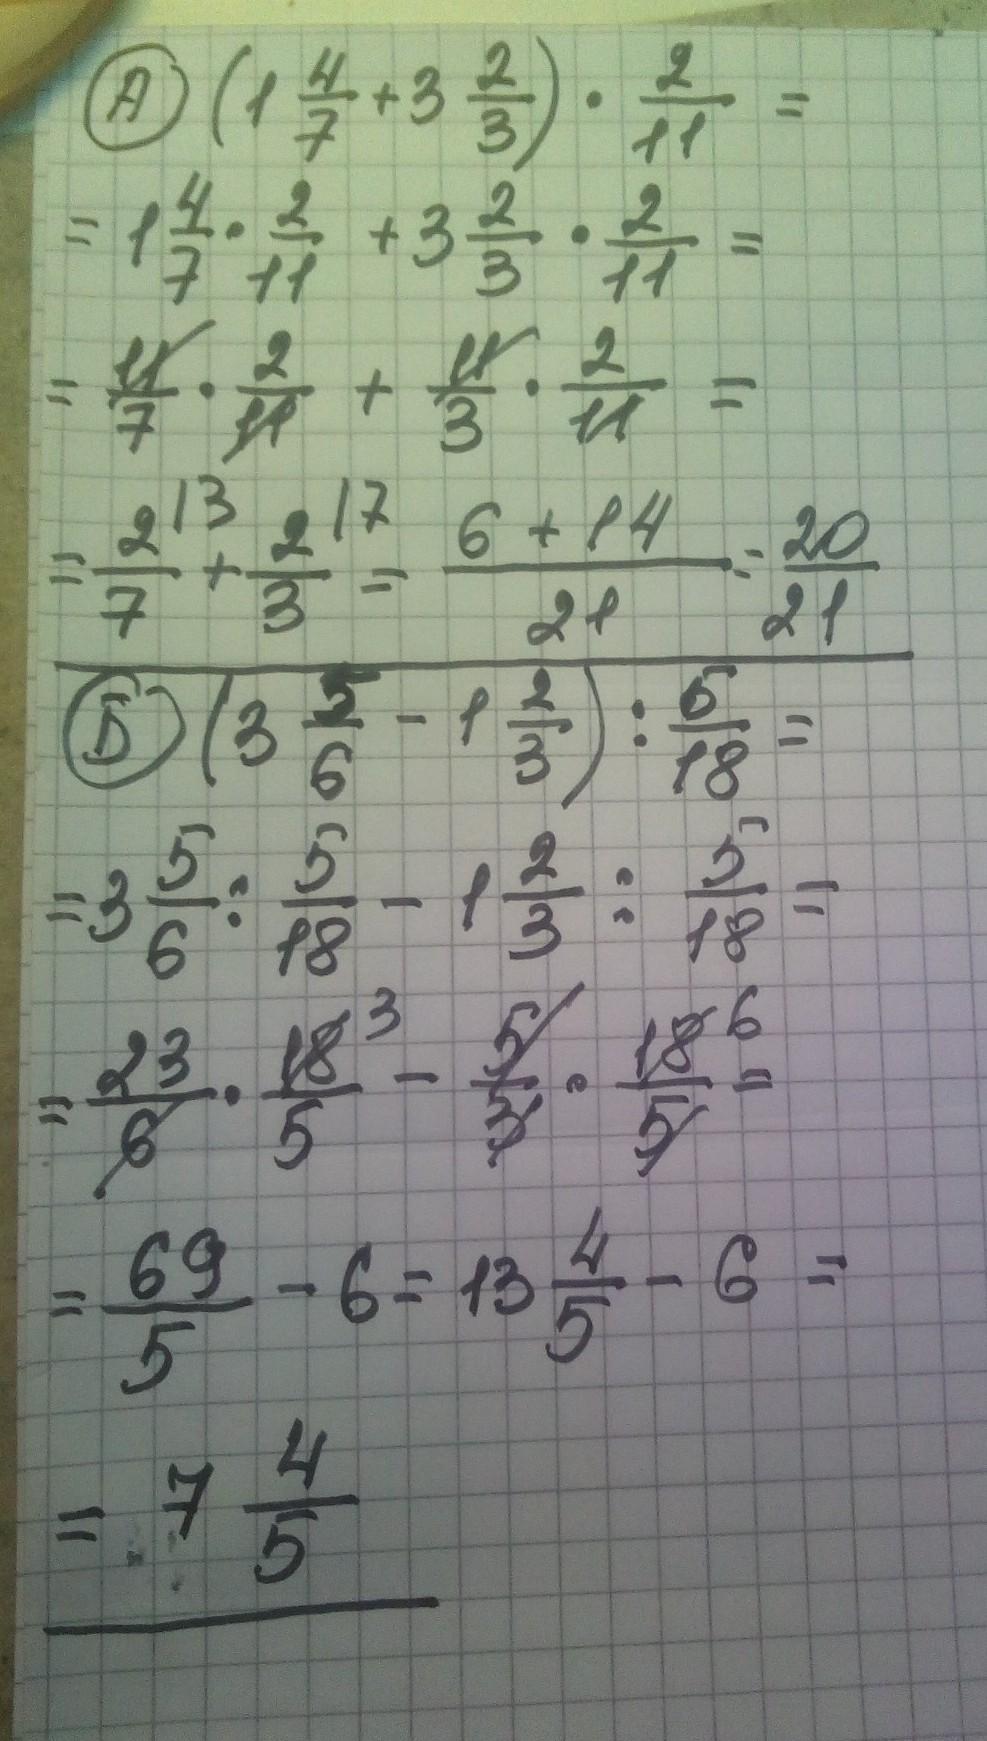 А) (1 4/7 + 3 2/3) · 2/11 =
= 1 4/7 · 2/11 + 3 2/3 · 2/11 =
= 11/7 · 2/11 + 11/3 · 2/11 =
= 2/7 |3 + 2/3 |7 = (6 + 14)/21 = 20/21
Б) (3 5/6 - 1 2/3) : 5/18 =
= 3 5/6 : 5/18 - 1 2/3 : 5/18 =
= 23/6 · 18/5 3 - 5/3 · 18/5 6 =
= 69/5 - 6 = 13 4/5 - 6 =
= 7 4/5